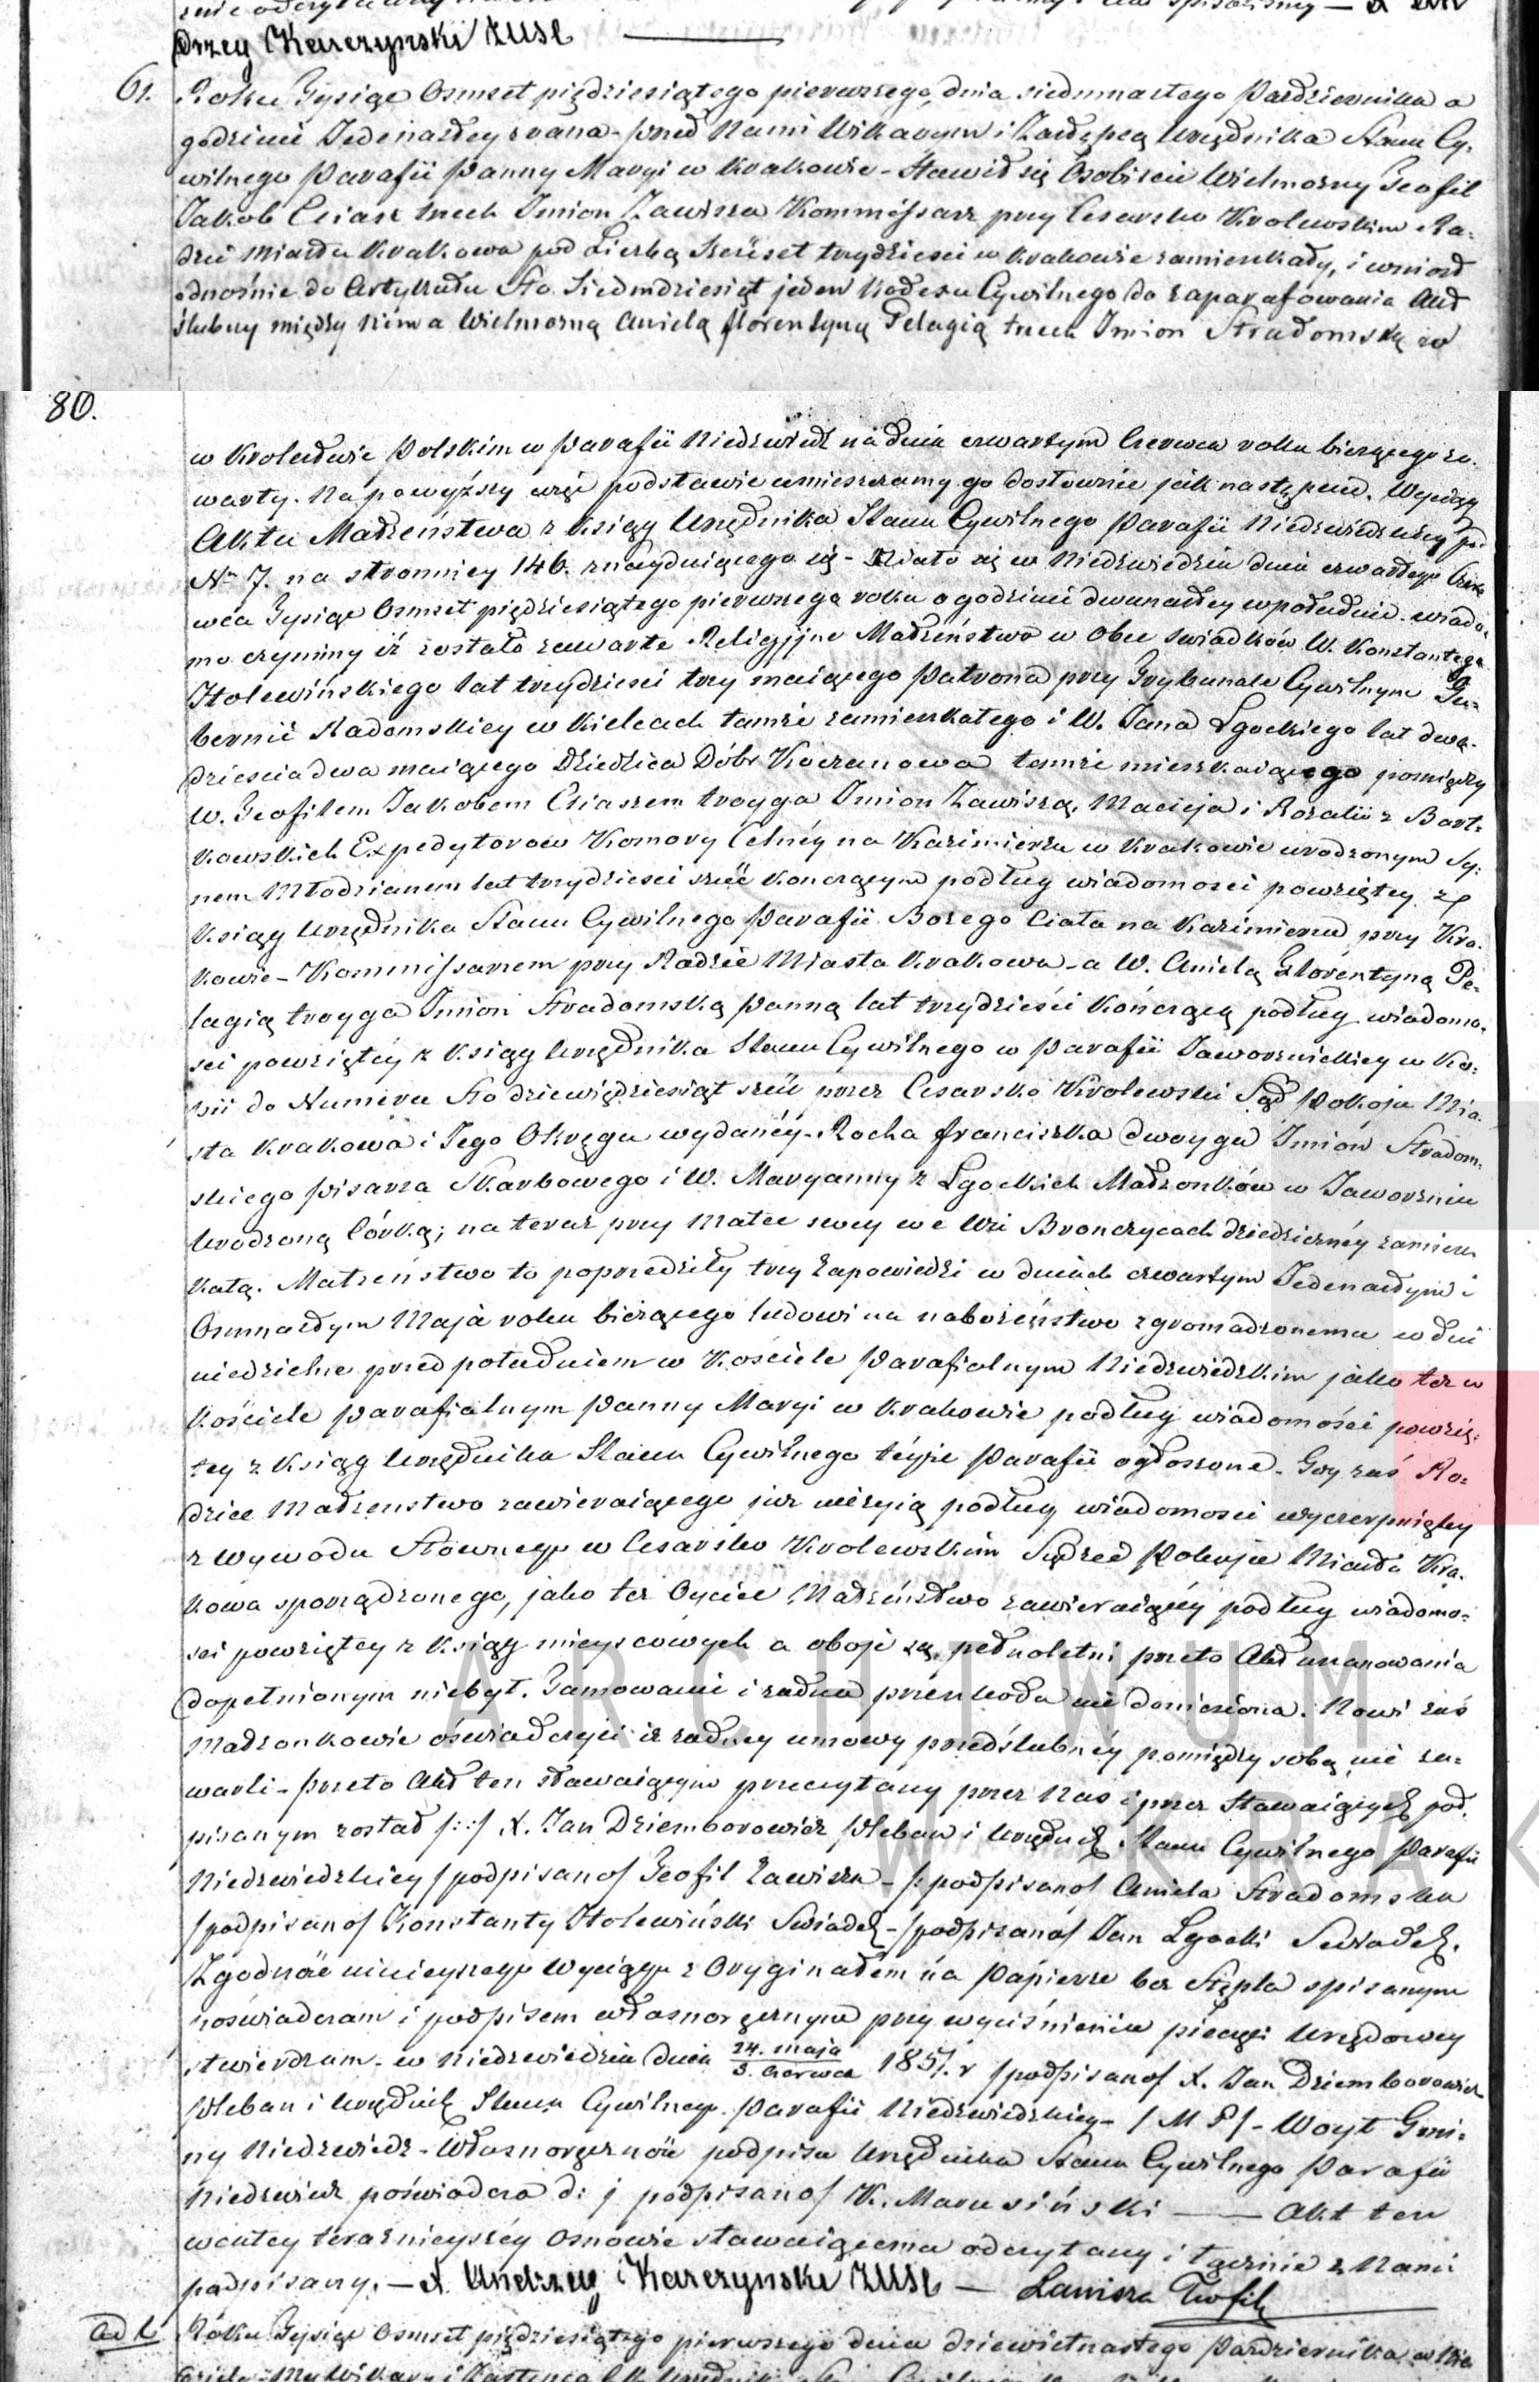 Drzey Karczynski ZUSC
61. Roku Tysiąc Osmset piędziesiątego pierwszego, dnia siedmnastego Pazdziernika o
godzinie Jedenastey zrana - przed Nami Wikarym i Zastępcą Urzędnika Stanu Cy-
wilnego Parafii Panny Maryi w Krakowie - Stawił się Osobiscie Wielmożny Teofil
Jakób Eliasz trzech Imion Zawisza Kommissarz przy Cesarsko Krolewskim Ra-
dzie Miasta Krakowa pod Liczbą Szeүset trzydziesci w Krakowie zamieszkały, i wniosł
odnośnie do Artykułu Sto Siedmdziesiąt jeden Kodexu Cywilnego do zaparafowania Akt
Slubny między nim a Wielmożną Anielą Florentyną Pelagią trzech Imion Stradomską za
80.
w Krolestwie Polskim w Parafii Niedzwiedz na dniu czwartym Czerwca roku bierzącego za-
warty. Na powyższy więc podstawie umieszczamy go dosłownie jak następuie. Wyciąg
Aktu Małżeństwa z Księgi Urzędnika Stanu Cywilnego Parafii Niedzwiedzkiey pod
Nr 7. na stronnicy 146. znayduiącego się - Działo się w Niedzwiedziu dnia czwartego Czer-
wca Tysiąc Osmset piędziesiątego pierwszego roku o godzinie dwunastey w południe. wiado-
mo czynimy iż zostało zawarte Religijne Małżeństwo w obec swiadków W. Konstantego
Stolewińskiego lat trzydziesci trzy maiącego Patrona przy Trybunale Cywilnym Gu-
bernii Radomskiey w Kielcach tamże zamieszkałego i W. Jana Lgockiego lat dwa-
dziescia dwa maiącego Dziedzica Dóbr Koczanowa tamże mieszkaiącego pomiędzy
W. Teofilem Jakobem Eliaszem troyga Imion Zawiszą, Macieja i Rozalii z Bart-
kowskich Expedytorow Komory Celnéy na Kazimierzu w Krakowie urodzonym Sy-
nem Młodzianem lat trzydziesci sześć kończącym podług wiadomosci powziętey z
Ksiąg Urzędnika Stanu Cywilnego Parafii Bożego Ciała na Kazimierzu przy Kra-
kowie - Kommissarzem przy Radzie Miasta Krakowa - a W. Anielą Florentyną Pe-
lagią troyga Imion Stradomską Panną lat trzydzieści kończącą podług wiadomo-
sci powziętéy z Ksiąg Urzędnika Stanu Cywilnego w Parafii Jaworznickiey w Ko-
pii do Numeru Sto dziewiędziesiąt sześć przez Cesarsko Krolewski Sąd Pokoju Mia-
sta Krakowa i Jego Okręgu wydanéy - Rocha Franciszka dwoyga Imion Stradom-
skiego Pisarza Skarbowego i W. Maryanny z Lgockich Małżonków w Jaworzniu
Urodzoną Córką; na teraz przy Matce swey we Wsi Bronczycach dziedzicznéy zamiesz-
kałą. Małżeństwo to poprzedziły trzy Zapowiedzi w dniach czwartym Jedenastym i
Osmnastym Maja roku bierzącego ludowi na nabożeństwo zgromadzonemu w dni
niedzielne przed południem w Kościele Parafialnym Niedzwiedzkim jako też w
Kościele Parafialnym Panny Maryi w Krakowie podług wiadomości powzię-
tey z Ksiąg Urzędnika Stanu Cywilnego téyże Parafii ogłoszone. Gdy zaś Ro-
dzice Małżenstwo zawieraiącego już nieżyią podług wiadomosci wyczerpniętey
z Wywodu Słownego w Cesarsko Krolewskim Sądzie Pokoju Miasta Kra-
kowa sporządzonego, jako też Oyciec Małżeństwo zawieraiącéy podług wiadomo-
sci powziętey z Ksiąg mieyscowych a oboje są pełnoletni przeto Akt uszanowania
dopełnionym niebył. Tamowanie i żadna przeszkoda nie doniesiona. Nowi zaś
Małżonkowie oświadczyli iż żadney umowy przedślubnéy pomiędzy sobą nie za-
warli - przeto Akt ten stawaiącym przeczytany przez Nas i przez Stawaiących pod-
pisanym został /:-:/ X. Jan Dziemborowicz Pleban i Urzędnik Stanu Cywilnego Parafii
Niedzwiedzkiey /podpisano/ Teofil Zawisza - /:podpisano/ Aniela Stradomska
/podpisano/ Konstanty Stolewiński Swiadek - /podpisano/ Jan Lgocki Swiadek.
Zgodność ninieyszego Wyciągu z Oryginałem na Papierze bez Stępla spisanym
poświadczam i podpisem własnoręcznym przy wyciśnieniu pieczęci Urzędowey
stwierdzam - w Niedzwiedziu dnia 24. maja / 5. Czerwca 1851. r /podpisano/ X. Jan Dziemborowicz
Pleban i Urzędnik Stanu Cywilnego Parafii Niedzwiedzkiey - /M P/ - Woyt Gmi-
ny Niedzwiedz - Własnoręczność podpisu Urzędnika Stanu Cywilnego Parafii
Niedzwiedz poświadcza d: j podpisano/ K. Marusiński —— Akt ten
w całey teraznieyszéy Osnowie stawaiącemu odczytany i łącznie z Nami
podpisany. - X. Andrzey Karczynski ZUSC - Zawisza Teofil
ad L Roku Tysiąc Osmset piędziesiątego pierwszego dnia dziewietnastego Pazdziernika w Nie
ARCHIWUM
W KRAK